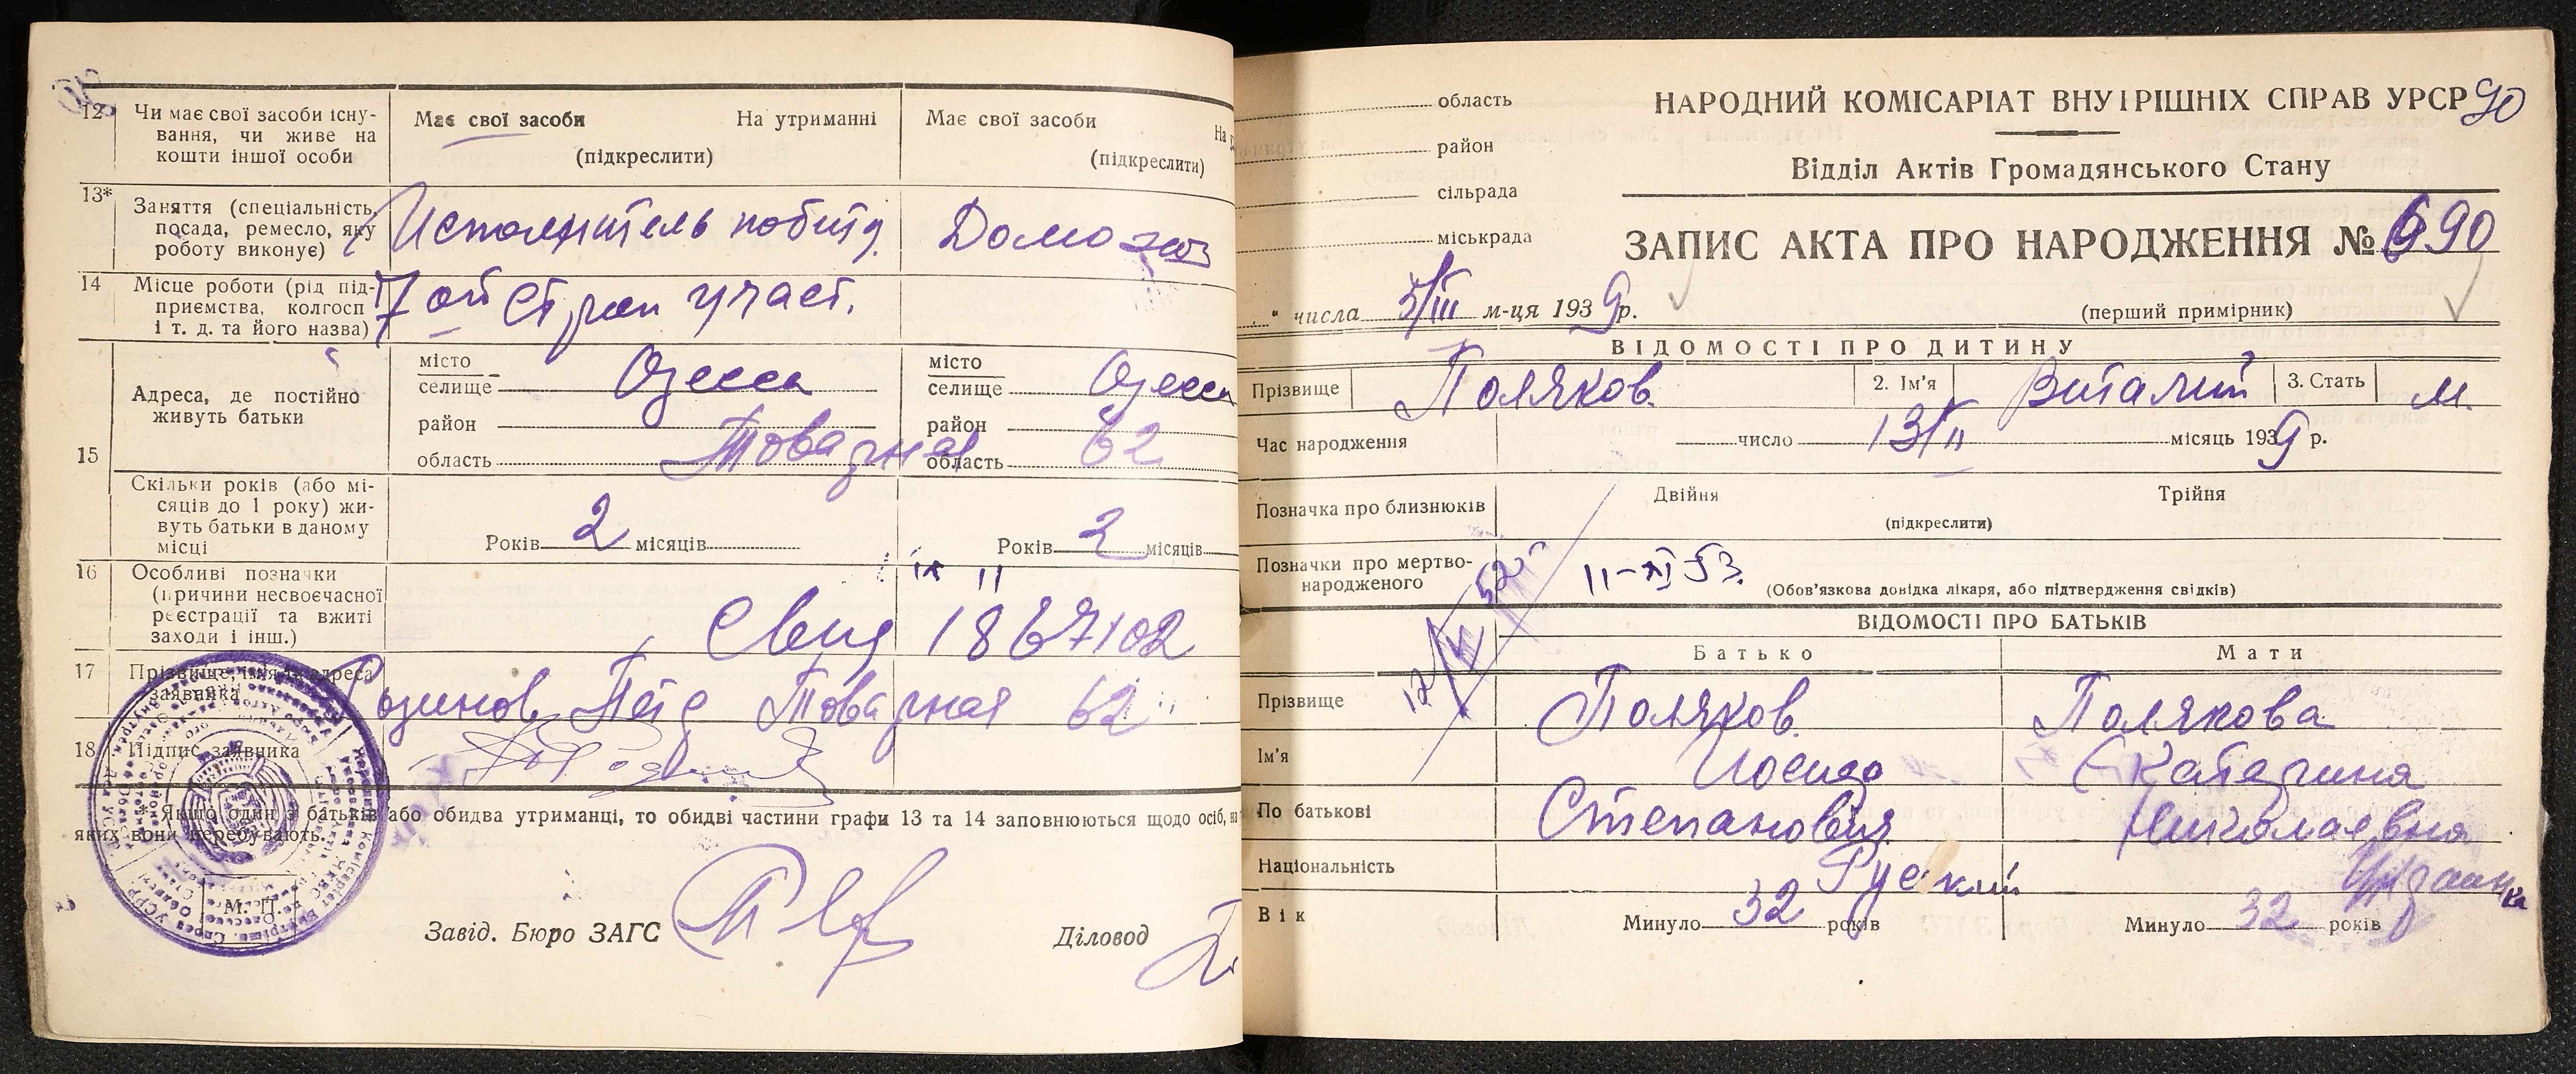 12 Чи має свої засоби існу-
вання, чи живе на
кошти іншої особи
Має свої засоби На утриманні
(підкреслити)
Має свої засоби
(підкреслити)
13* Заняття (спеціальність,
посада, ремесло, яку
роботу виконує)
Исполнитель побиту Домохоз
14 Місце роботи (рід під-
приємства, колгосп
і т. д. та його назва)
7 ой Строй участ.
15 Адреса, де постійно
живуть батьки
місто
селище Одесса
район
область Товарная
місто
селище Одесса
район
область 62
Скільки років (або мі-
сяців до 1 року) жи-
вуть батьки в даному
місці
Років 2 місяців
Років 2 місяців
16 Особливі позначки
(причини несвоєчасної
реєстрації та вжиті
заходи і інш.)
Свид 1867102
17 Прізвище, ім'я й адреса
заявника
Товарная 62
18 Підпис заявника
* Якщо один з батьків або обидва утриманці, то обидві частини графи 13 та 14 заповнюються щодо осіб, на
яких вони перебувають.
М. П.
Завід. Бюро ЗАГС
Діловод
область
район
сільрада
міськрада
НАРОДНИЙ КОМІСАРІАТ ВНУТРІШНІХ СПРАВ УРСР 90
Відділ Актів Громадянського Стану
ЗАПИС АКТА ПРО НАРОДЖЕННЯ № 690
" числа 5/III м-ця 1939 р.
(перший примірник)
ВІДОМОСТІ ПРО ДИТИНУ
Прізвище Поляков 2. Ім'я Виталий 3. Стать м.
Час народження число 13/II місяць 1939 р.
Позначка про близнюків
Двійня Трійня
(підкреслити)
Позначки про мертво-
народженого
11-XI 53.
(Обов'язкова довідка лікаря, або підтвердження свідків)
ВІДОМОСТІ ПРО БАТЬКІВ
Батько Мати
Прізвище Поляков Полякова
Ім'я Иосиф Екатерина
По батькові Степанович Николаевна
Національність Руский Украинка
Вік Минуло 32 років Минуло 32 років